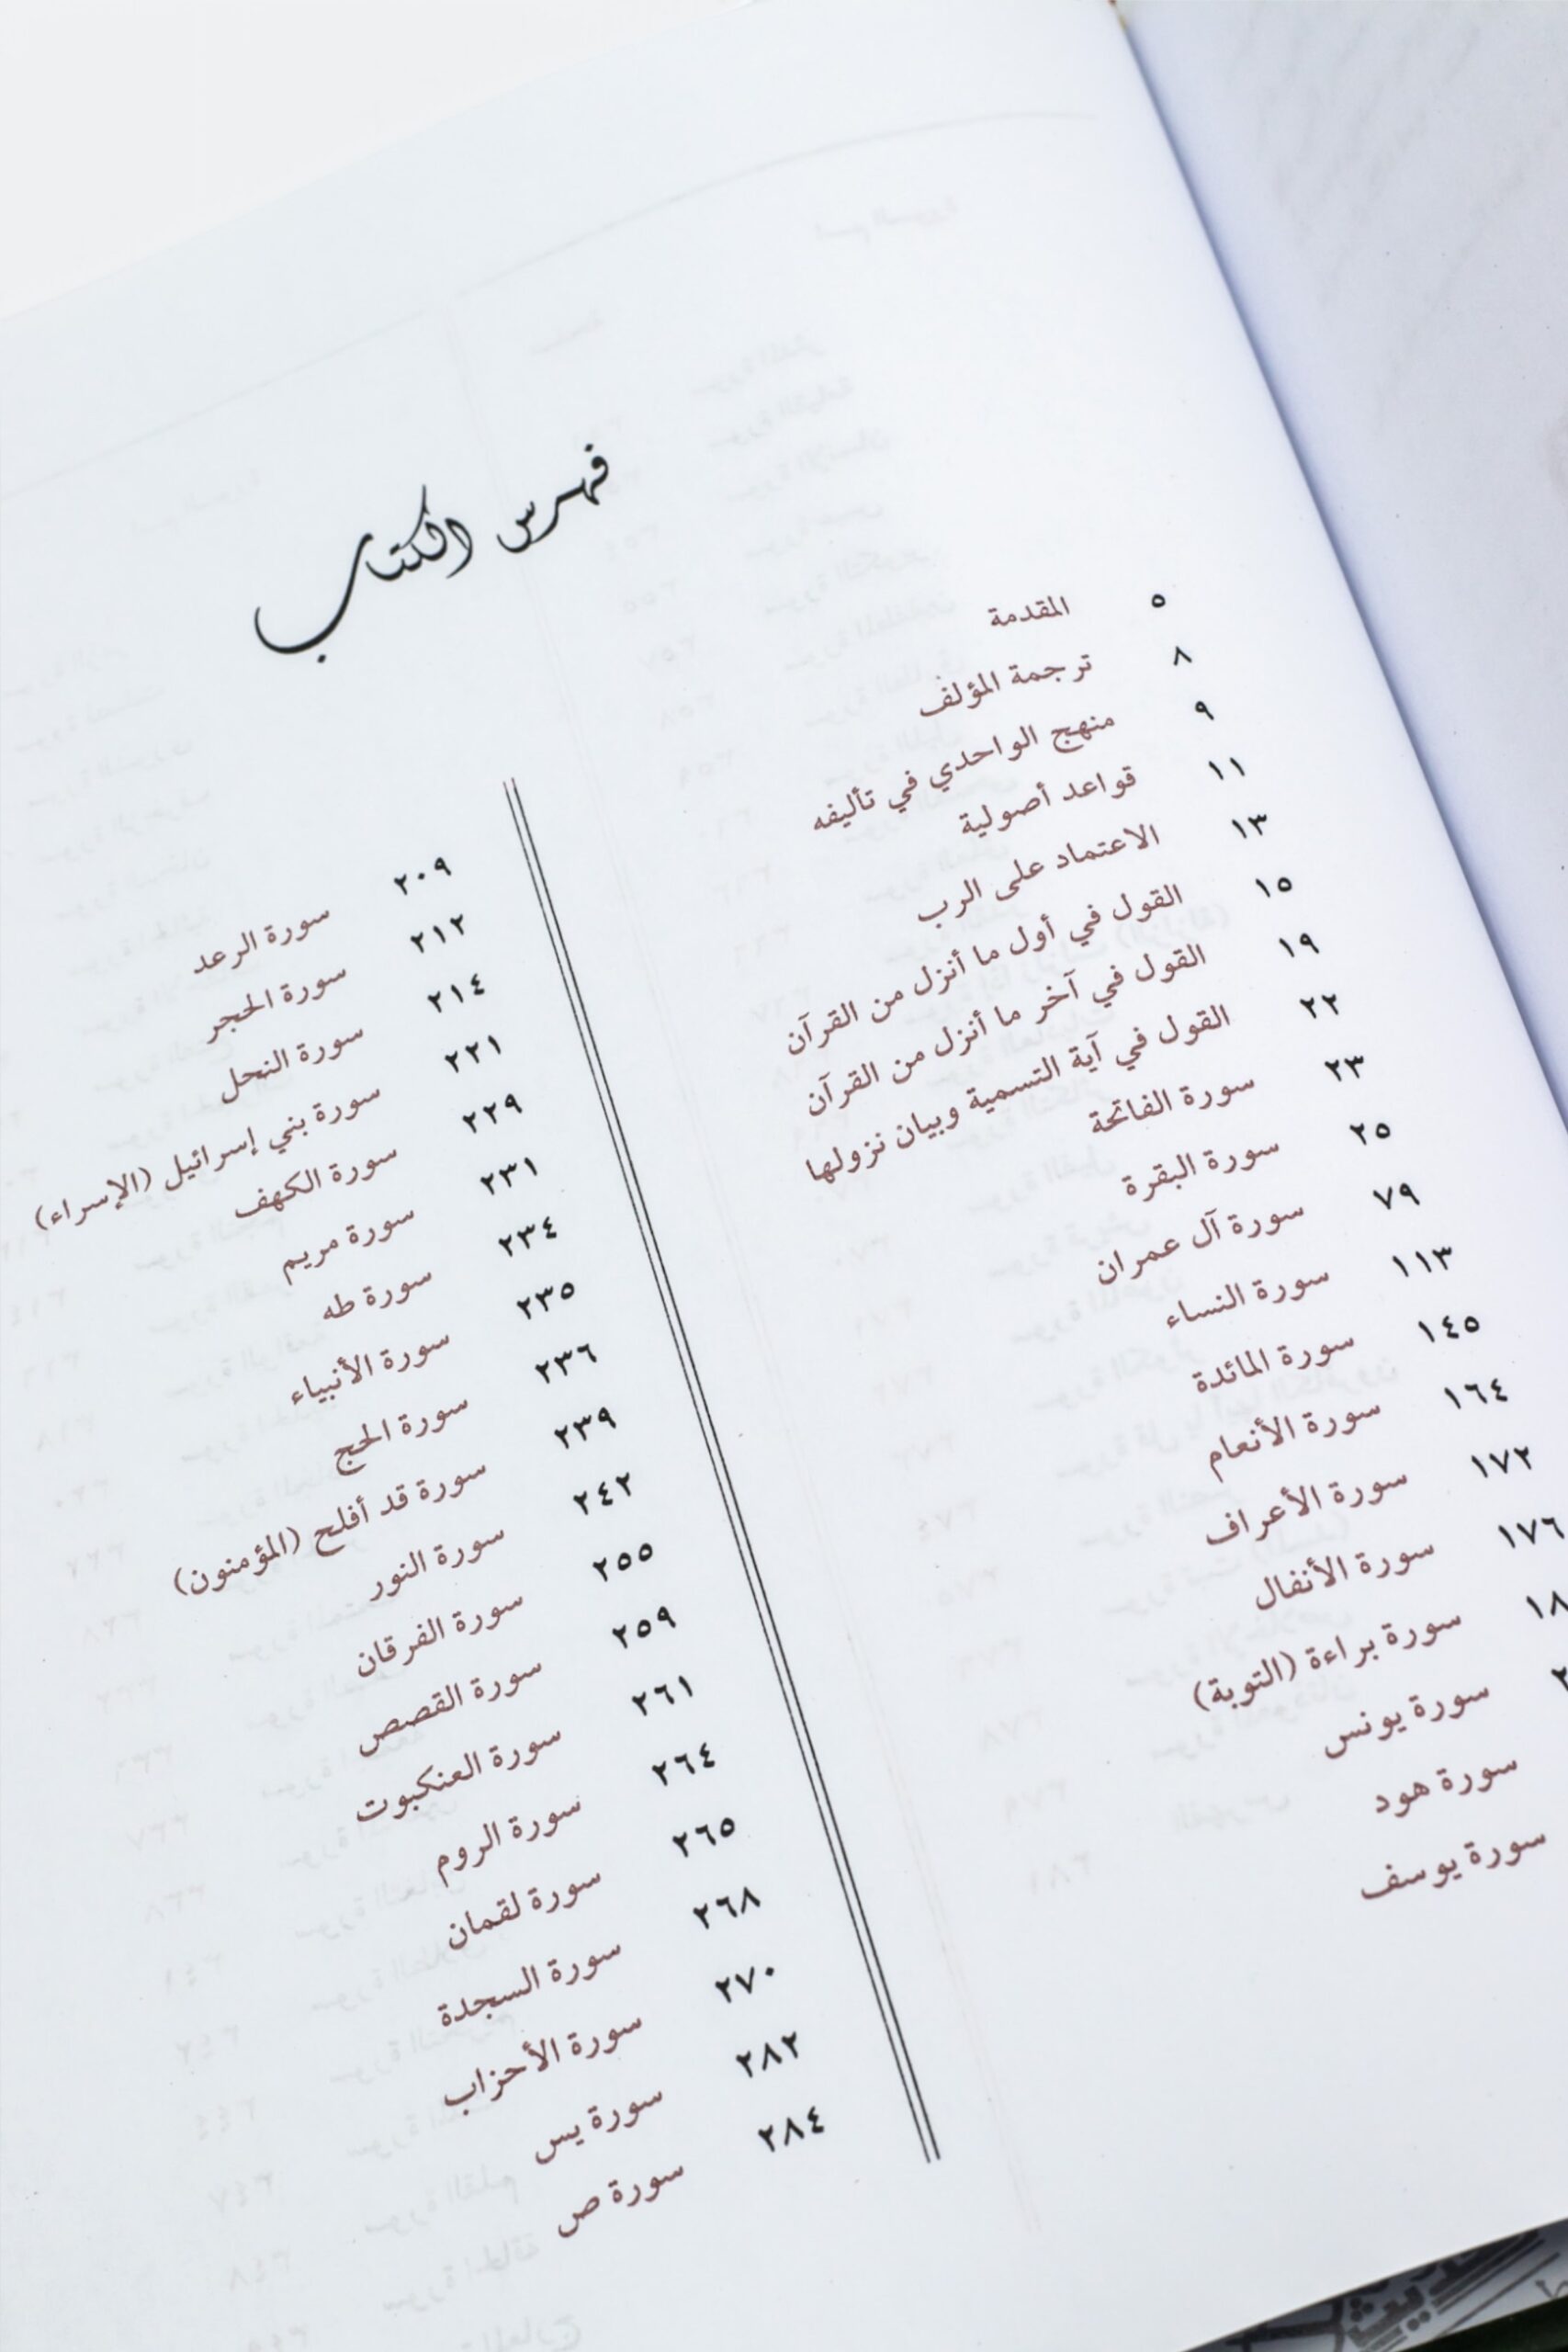 فهرس الكتاب
٥ المقدمة
٨ ترجمة المؤلف
٩ منهج الواحدي في تأليفه
١١ قواعد أصولية
١٣ الاعتماد على الرب
١٥ القول في أول ما أنزل من القرآن
١٩ القول في آخر ما أنزل من القرآن
٢٢ القول في آية التسمية وبيان نزولها
٢٣ سورة الفاتحة
٢٥ سورة البقرة
٧٩ سورة آل عمران
١١٣ سورة النساء
١٤٥ سورة المائدة
١٦٤ سورة الأنعام
١٧٢ سورة الأعراف
١٧٦ سورة الأنفال
سورة براءة (التوبة)
سورة يونس
سورة هود
سورة يوسف
٢٠٩ سورة الرعد
٢١٢ سورة الحجر
٢١٤ سورة النحل
٢٢١ سورة بني إسرائيل (الإسراء)
٢٢٩ سورة الكهف
٢٣١ سورة مريم
٢٣٤ سورة طه
٢٣٥ سورة الأنبياء
٢٣٦ سورة الحج
٢٣٩ سورة قد أفلح (المؤمنون)
٢٤٢ سورة النور
٢٥٥ سورة الفرقان
٢٥٩ سورة القصص
٢٦١ سورة العنكبوت
٢٦٤ سورة الروم
٢٦٥ سورة لقمان
٢٦٨ سورة السجدة
٢٧٠ سورة الأحزاب
٢٨٢ سورة يس
٢٨٤ سورة ص